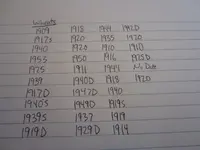 Wheats
1909 1918 1944 1920
1917s 1920 1935 1920
1940 1920 1910 1910
1953 1950 1916 1925D
1925 1911 1944 No Date
1939 1940D 1918 1920
1917D 1947D 1940
1940s 1944D 1919s
1939s 1937 1919
1919D 1929D 1919